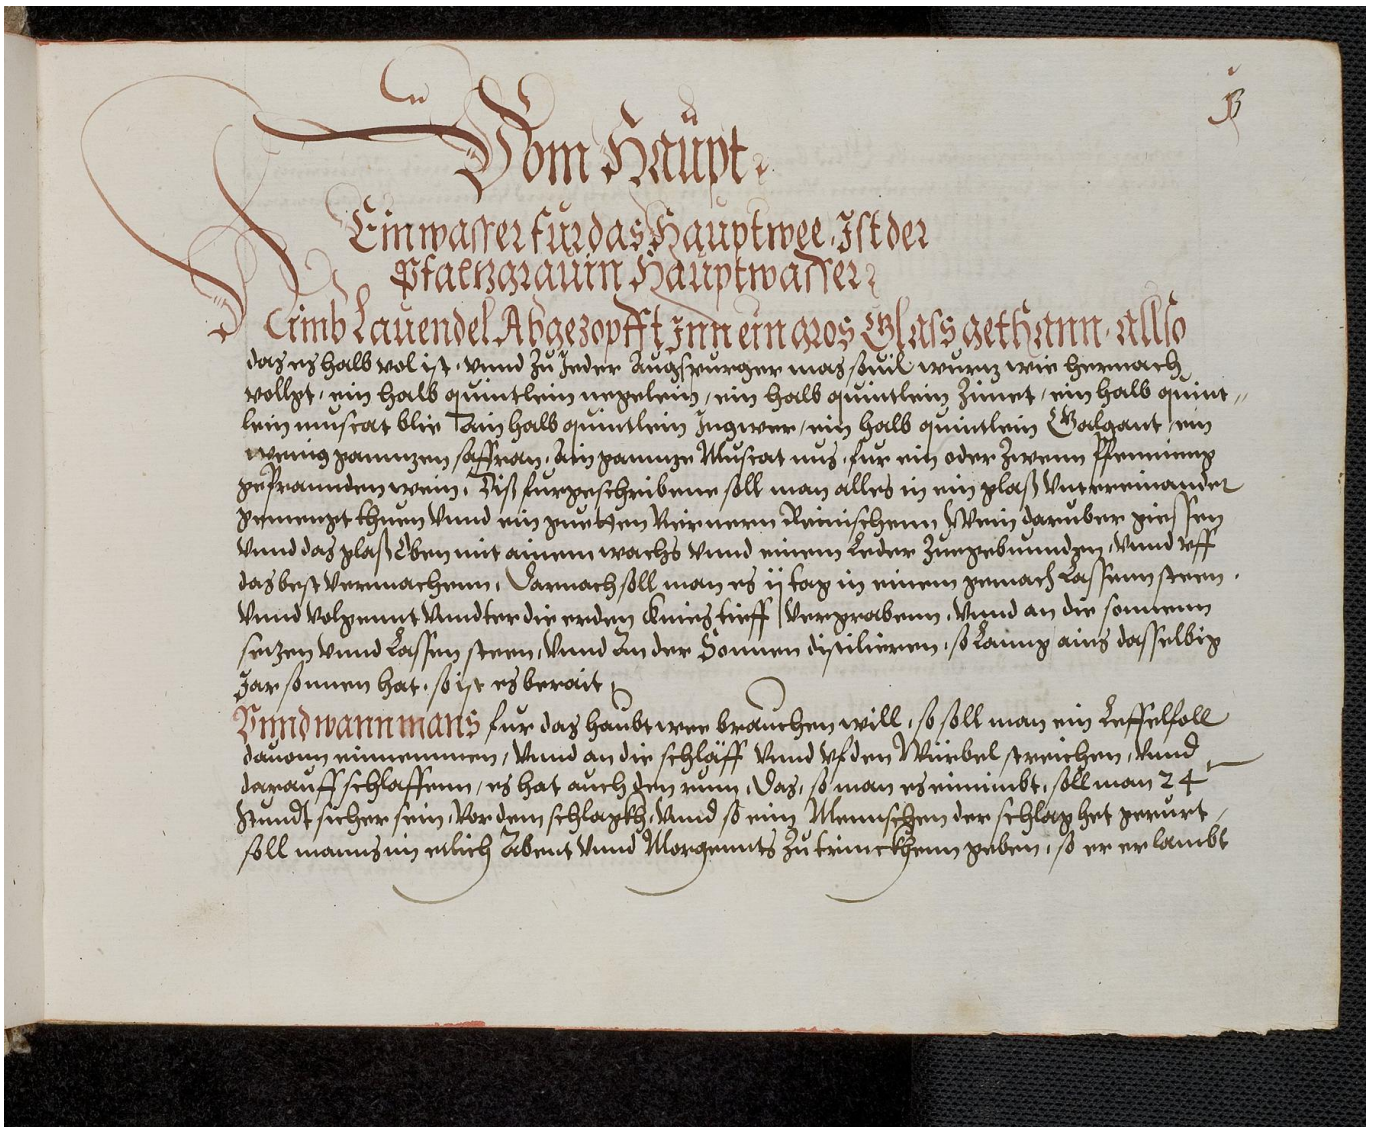 Vom Haupt
Ein wasser fur das Hauptwee, Ist der
Pfaltzgrauin Hauptwasser
Nimb Lauendel Abgezopfft Inn ein gros Glass gethann, allso
das es halb vol ist, vnnd zu Jeder Augspurger mas souil wurtz wie hernach
volgt, ein halb quintlein negelein, ein halb quintlein Zimet, ein halb quint-
lein muscat blie, Ain halb quintlein Ingwer, ein halb quintlein Galgant, ein
wenig ganntzen saffran, Ain gantze Muscat nus, fur ein oder Zwenn Pfenning
geprannden wein, Diß furgeschribene soll man alles in ein glaß vntereinander
gemengt thuen vnnd ein guetten virnenn Reinischenn Wein daruber giessen
vnnd das glaß Oben mit ainem wachs vnnd einem Leder Zuegebunnden, vnnd vff
das best vermachenn, Darnach soll man es ij tag in einem gemach Lassenn steen,
vnnd volgennt vnndter die erden kniestieff vergrabenn, vnnd an die sonnenn
setzen vnnd Lassen steen, vnnd An der Sonnen distilieren, so Lanng ains dasselbig
Jar sonnen hat, so ist es berait
Vnnd wann mans fur das haubtwee brauchen will, so soll man ein Leffelfoll
dauonn einnemmen, vnnd an die schläff vnnd vf den Würbel streichen, vnnd
darauff schlaffenn, es hat auch den rum, Das, so man es einnimbt, soll man 24
stundt sicher sein, vor dem schlagkh, vnnd so ein Mennschen der schlag het gerurt,
soll manns im etlich Abent vnnd Morgennts zu trinckhenn geben, so er erlambt